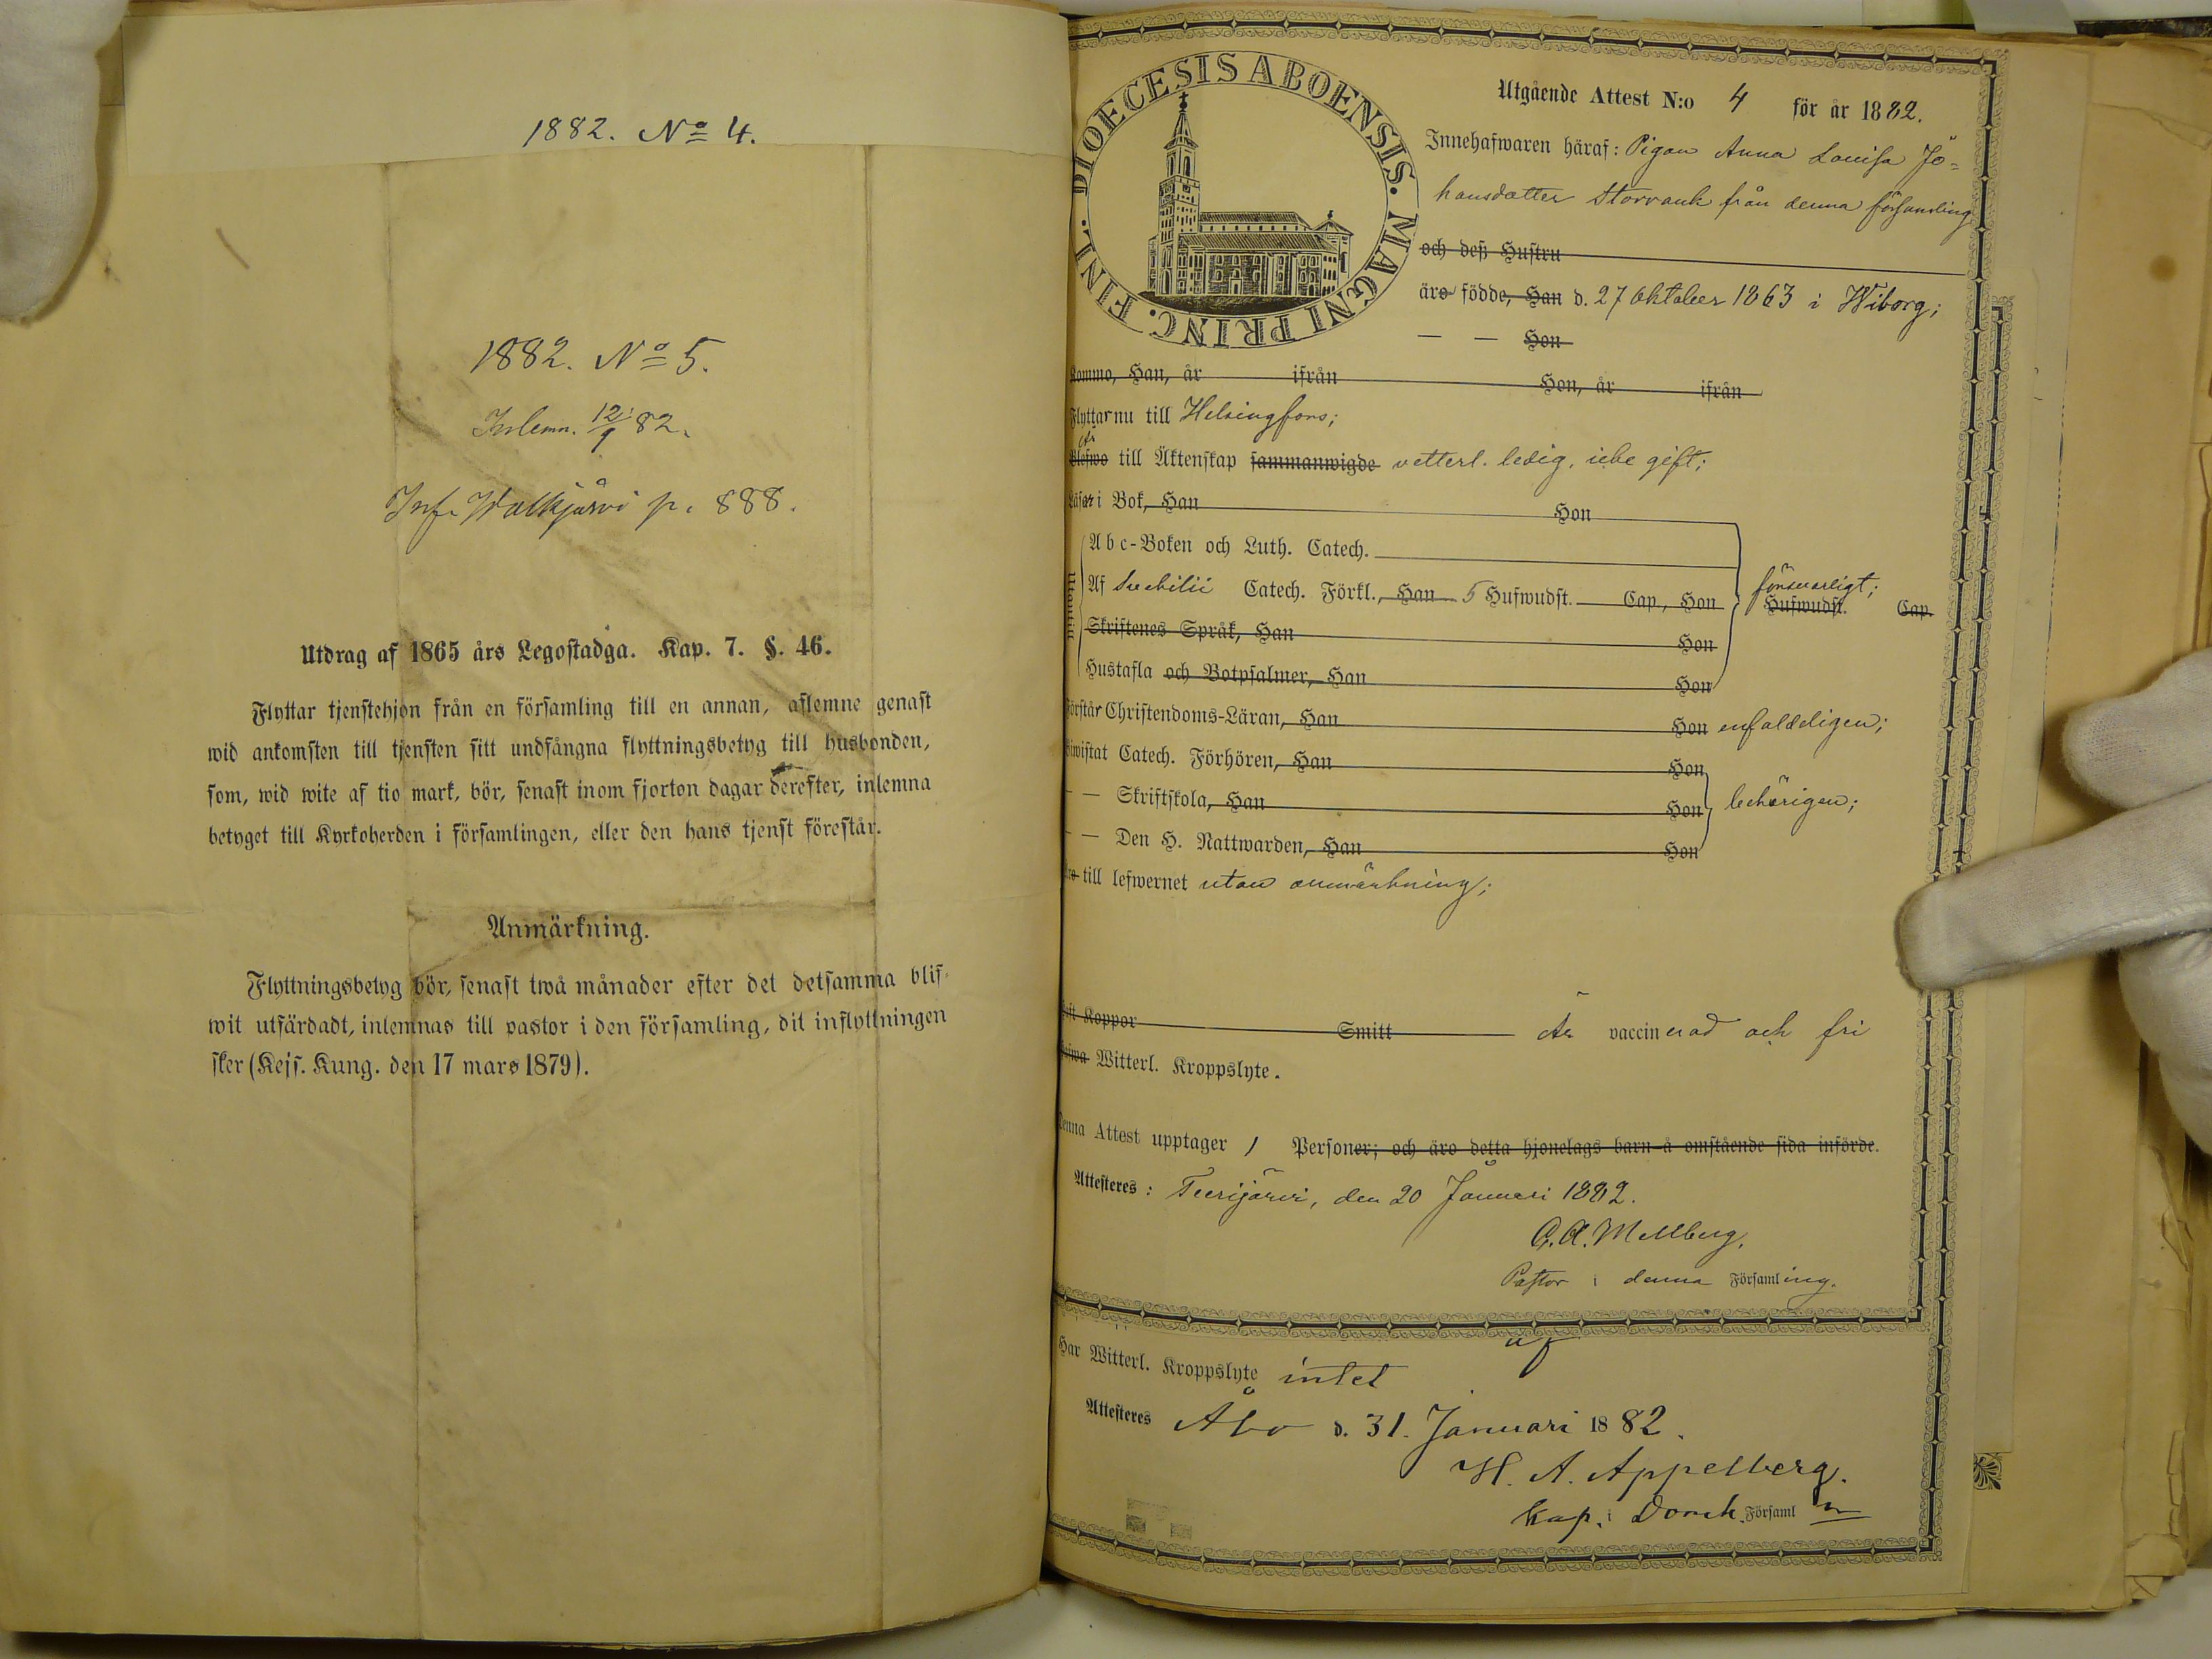 1882. No 4.
1882. No 5.
Inlemn. 12/9 82.
Inf. Walkjärvi p. 888.
Utdrag af 1865 års Legostadga. Kap. 7. §. 46.
Flyttar tjenstehjon från en församling till en annan, aflemne genast
wid ankomsten till tjensten sitt undfångna flyttningsbetyg till husbonden,
som, wid wite af tio mark, bör, senast inom fjorton dagar derefter, inlemna
betyget till Kyrkoherden i församlingen, eller den hans tjenst förestår.
Anmärkning.
Flyttningsbetyg bör, senast twå månader efter det detsamma blif-
wit utfärdadt, inlemnas till pastor i den församling, dit inflyttningen
sker (Kejs. Kung. den 17 mars 1879).
DIOECESIS ABOENSIS. MAGNI PRINC. FINL.
Utgående Attest N:o 4 för år 1882.
Innehafwaren häraf: Pigan Anna Lovisa Jo=
hansdotter Storrank från denna församling
och deß Hustru
äro födde, Han d. 27 Oktober 1863 i Wiborg;
— — Hon
Kommo, Han, år ifrån Hon, år ifrån
Flyttar nu till Helsingfors;
Är
Blefwo till Äktenskap sammanwigde vetterl. ledig, icke gift;
Läser i Bok, Han Hon
Abc-Boken och Luth. Catech.
Af Svebilii Catech. Förkl., Han 5 Hufwudst. Cap., Hon Hufwudst. Cap.
försvarligt;
Utantill
Skriftenes Språk, Han Hon
Hustafla och Botpsalmer, Han Hon
Förstår Christendoms-Läran, Han Hon enfaldeligen;
Biwistat Catech. Förhören, Han Hon
— — Skriftskola, Han Hon behörigen;
— — Den H. Nattwarden, Han Hon
Äro till lefwernet utan anmärkning;
Haft Koppor Smitt Är vaccinerad och fri
Hafwa Witterl. Kroppslyte.
Denna Attest upptager 1 Personer; och äro detta hjonelags barn å omstående sida införde.
Attesteres: Teerijärvi, den 20 Januari 1882.
A. Mellberg.
Pastor i denna Församling.
af
Har Witterl. Kroppslyte intet
Attesteres Åbo d. 31. Januari 1882.
H. A. Appelberg.
Kap. i Domk. Församl n